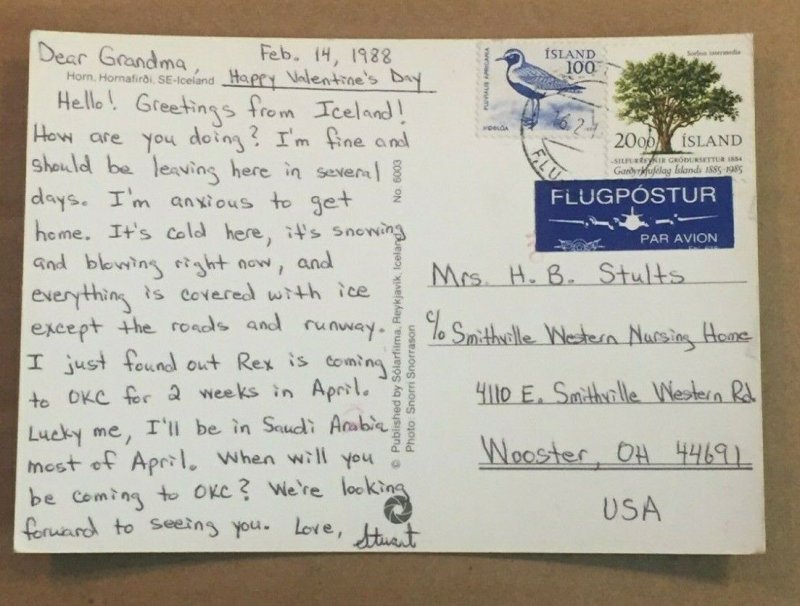 Dear Grandma,
Feb. 14, 1988
Horn, Hornafirði, SE-Iceland
Happy Valentine's Day
Hello! Greetings from Iceland!
How are you doing? I'm fine and
should be leaving here in several
days. I'm anxious to get
home. It's cold here, it's snowing
and blowing right now, and
everything is covered with ice
except the roads and runway.
I just found out Rex is coming
to OKC for 2 weeks in April.
Lucky me, I'll be in Saudi Arabia
most of April. When will you
be coming to OKC? We're looking
forward to seeing you. Love,
Stuart
No. 6003
© Published by Sólarfilma, Reykjavik, Iceland
Photo: Snorri Snorrason
FLUVIALIS APRICARIA
ÍSLAND
100
HEIÐLÓA
Sorbus intermedia
2000 ÍSLAND
SILFURREYNIR GRÓÐURSETTUR 1884
Garðyrkjufélag Íslands 1885-1985
FLU
FLUGPÓSTUR
PAR AVION
Mrs. H. B. Stults
c/o Smithville Western Nursing Home
4110 E. Smithville Western Rd.
Wooster, OH 44691
USA